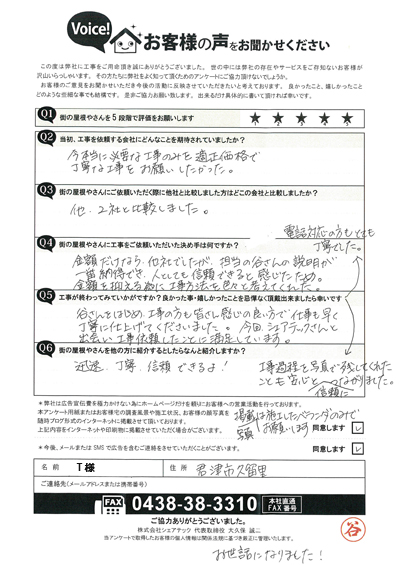 Voice!
お客様の声をお聞かせください
この度は弊社に工事をご用命頂き誠にありがとうございました。世の中には弊社の存在やサービスをご存知ないお客様が
沢山いらっしゃいます。その方たちに弊社をよく知って頂くためのアンケートにご協力頂けないでしょうか。
お客様のご意見をお聞かせいただき今後の活動に反映させていただきたいと考えております。良かったこと、嬉しかったこと
どのような些細な事でも結構です。是非ご協力お願い致します。出来るだけ具体的に書いて頂ければ幸いです。
Q1 街の屋根やさんを5段階で評価をお願いします ★ ★ ★ ★ ★
Q2 当初、工事を依頼する会社にどんなことを期待されていましたか?
今本当に必要な工事のみを適正価格で
丁寧な工事をお願いしたかった。
Q3 街の屋根やさんにご依頼いただく際に他社と比較しました方はどこの会社と比較しましたか?
他、2社と比較しました。
電話対応の方もとても
丁寧でした。
Q4 街の屋根やさんに工事をご依頼いただいた決め手は何ですか?
金額だけなら他社でしたが、担当の谷さんの説明が
一番納得でき、人としても信頼できると感じたため。
金額を抑える為に工事方法を色々と考えてくれた。
Q5 工事が終わってみていかがですか?良かった事・嬉しかったことを忌憚なく頂戴出来ましたら幸いです
谷さんをはじめ、工事の方も皆さん感じの良い方で仕事も早く
丁寧に仕上げてくださいました。今回シェアテックさんと
出会い工事依頼したことに満足しています。
Q6 街の屋根やさんを他の方に紹介するとしたらなんと紹介しますか?
迅速、丁寧、信頼できるよ!
工事過程を写真で残してくれた
ことも安心と信頼につながりました。
*弊社は広告宣伝費を極力かけない為にホームページだけを頼りにお客様への営業活動を行っております。
本アンケート用紙またはお客様宅の調査風景や施工状況、お客様の顔写真を
随時ブログ形式のインターネットに掲載させて頂いております。
上記内容をインターネットや印刷物に掲載させていただく場合がございます。
掲載は施工したベランダのみで
お願いします 同意します
*今後、メールまたはSMSで広告を含むご連絡をさせていただくことがございます。 同意します
名前 T様 住所 君津市久留里
ご連絡先(メールアドレスまたは携帯番号)
FAX 0438-38-3310 本社直通FAX番号
ご協力ありがとうございました。
株式会社シェアテック 代表取締役 大久保 誠二
当アンケートで取得したお客様の個人情報は関係法規に基づき適正に管理いたします。
谷
お世話になりました!